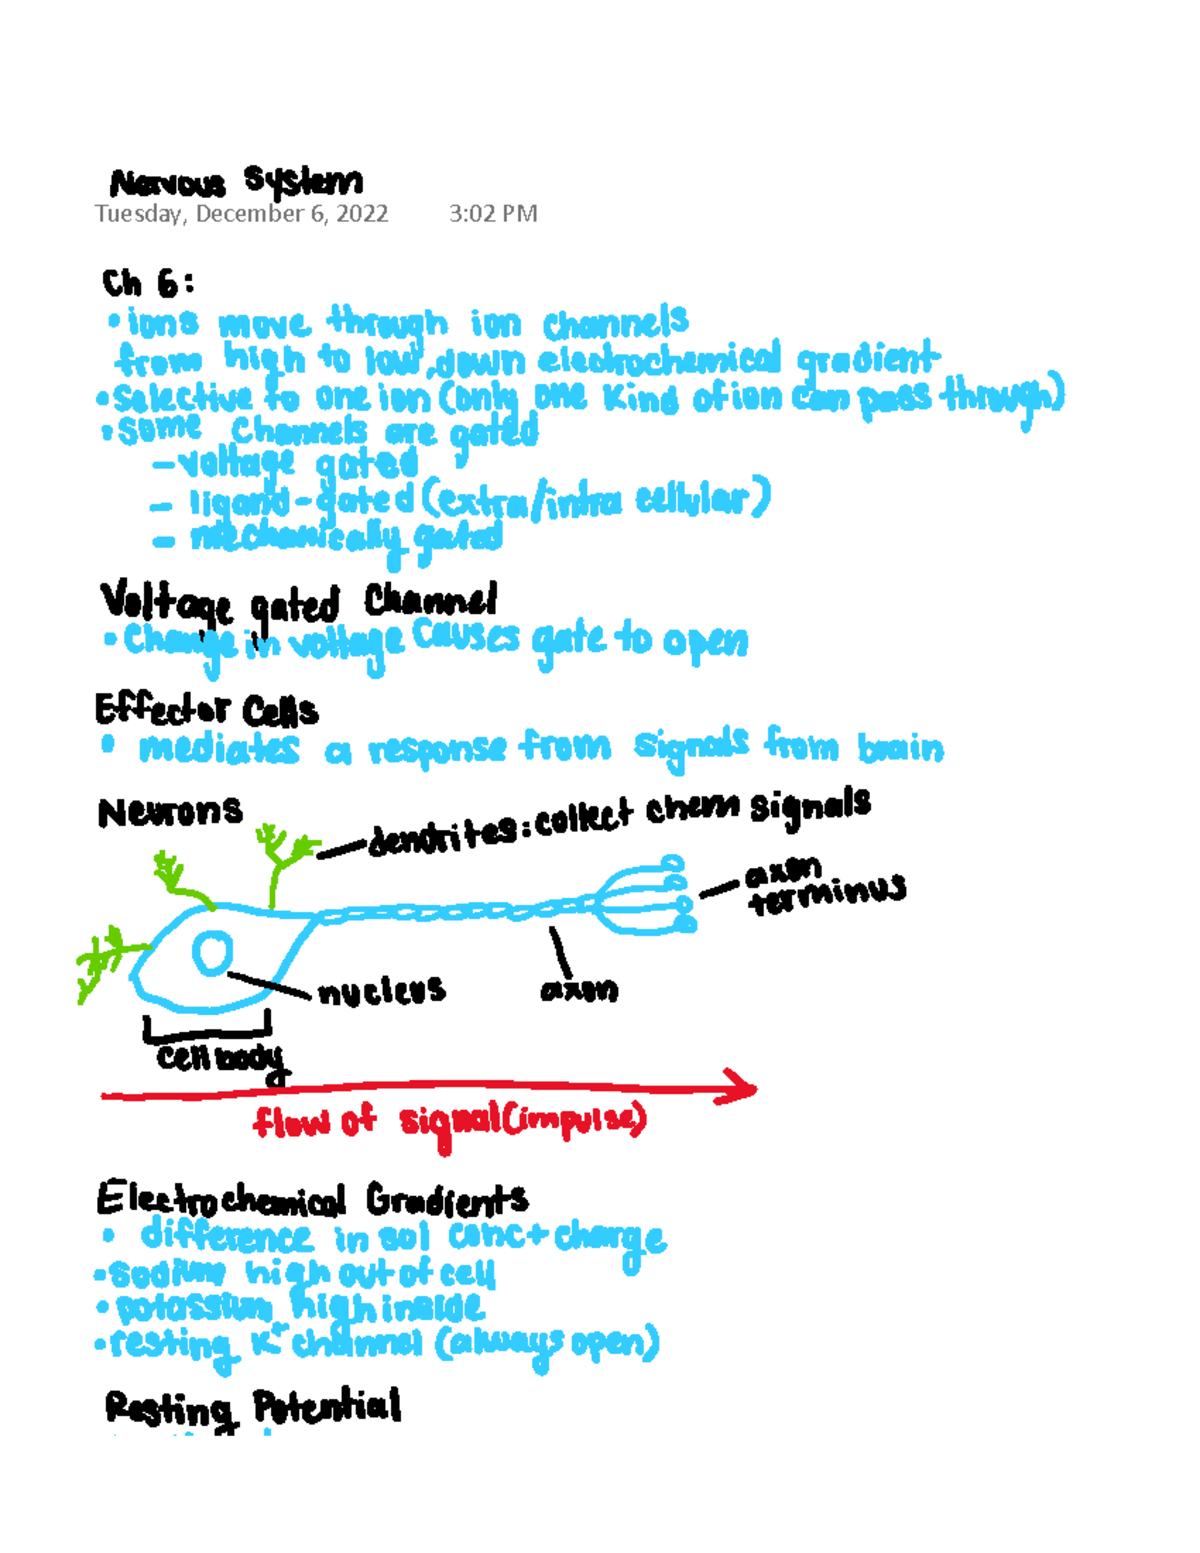 Nervous System
Tuesday, December 6, 2022 3:02 PM
Ch 6:
• ions move through ion channels
from high to low, down electrochemical gradient
• Selective to one ion (only one kind of ion can pass through)
• Some channels are gated
– voltage gated
– ligand-gated (extra/intra cellular)
– mechanically gated
Voltage gated Channel
• Change in voltage causes gate to open
Effector Cells
• mediates a response from signals from brain
Neurons
dendrites: collect chem signals
axon
terminus
nucleus
axon
cell body
flow of signal (impulse)
Electrochemical Gradients
• difference in sol conc + charge
• sodium high out of cell
• potassium high inside
• resting K⁺ channel (always open)
Resting Potential